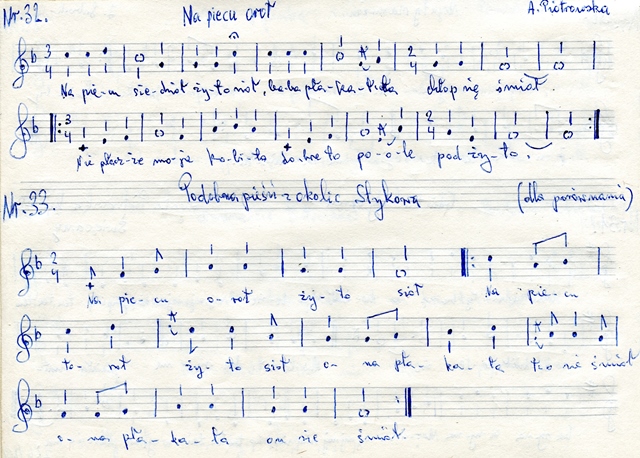 Nr. 32. Na piecu orot A. Piotrowska
Na pie-cu sie-dniot ży-to siot, ba-ba pła-ka-ła chłop się śmiał.
Nie płacz-że mo-je ko-bi-to do-bre to po-o-le pod ży-to.
Nr. 33. Podobna pieśń z okolic Stykowa (dla porównania)
Na pie-cu o-rot ży-to siot Na pie-cu
to-rot ży-to siot o-na pła-ka-ła a on się śmiał
o-na pła-ka-ła on się śmiał.